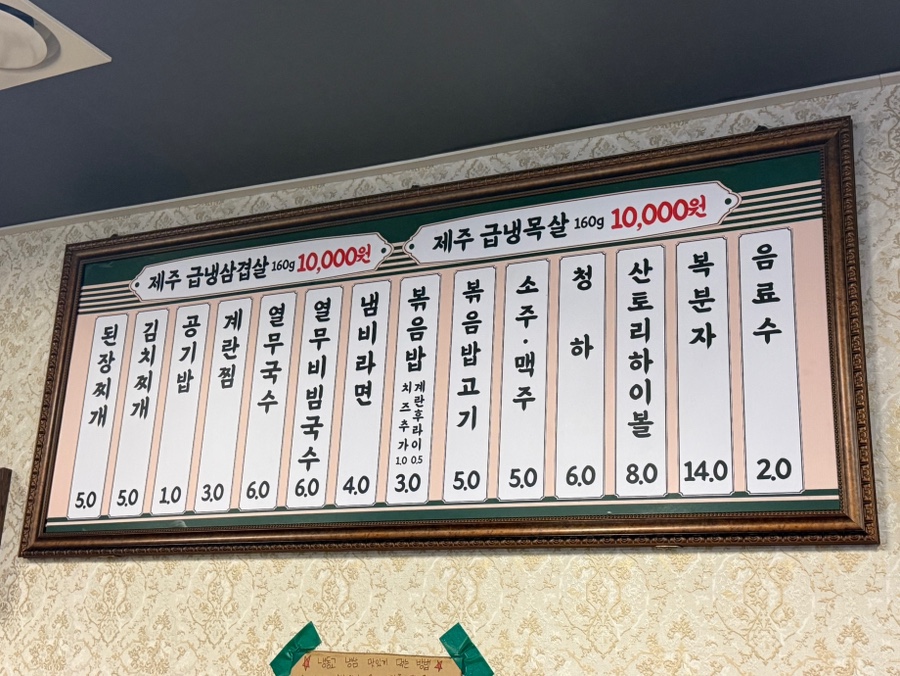 제주 급냉삼겹살 160g 10,000원
제주 급냉목살 160g 10,000원
된장찌개 5.0
김치찌개 5.0
공기밥 1.0
계란찜 3.0
열무국수 6.0
열무비빔국수 6.0
냄비라면 4.0
볶음밥 3.0
계란후라이 0.5
치즈추가 1.0
볶음밥고기 5.0
소주·맥주 5.0
청하 6.0
산토리하이볼 8.0
복분자 14.0
음료수 2.0